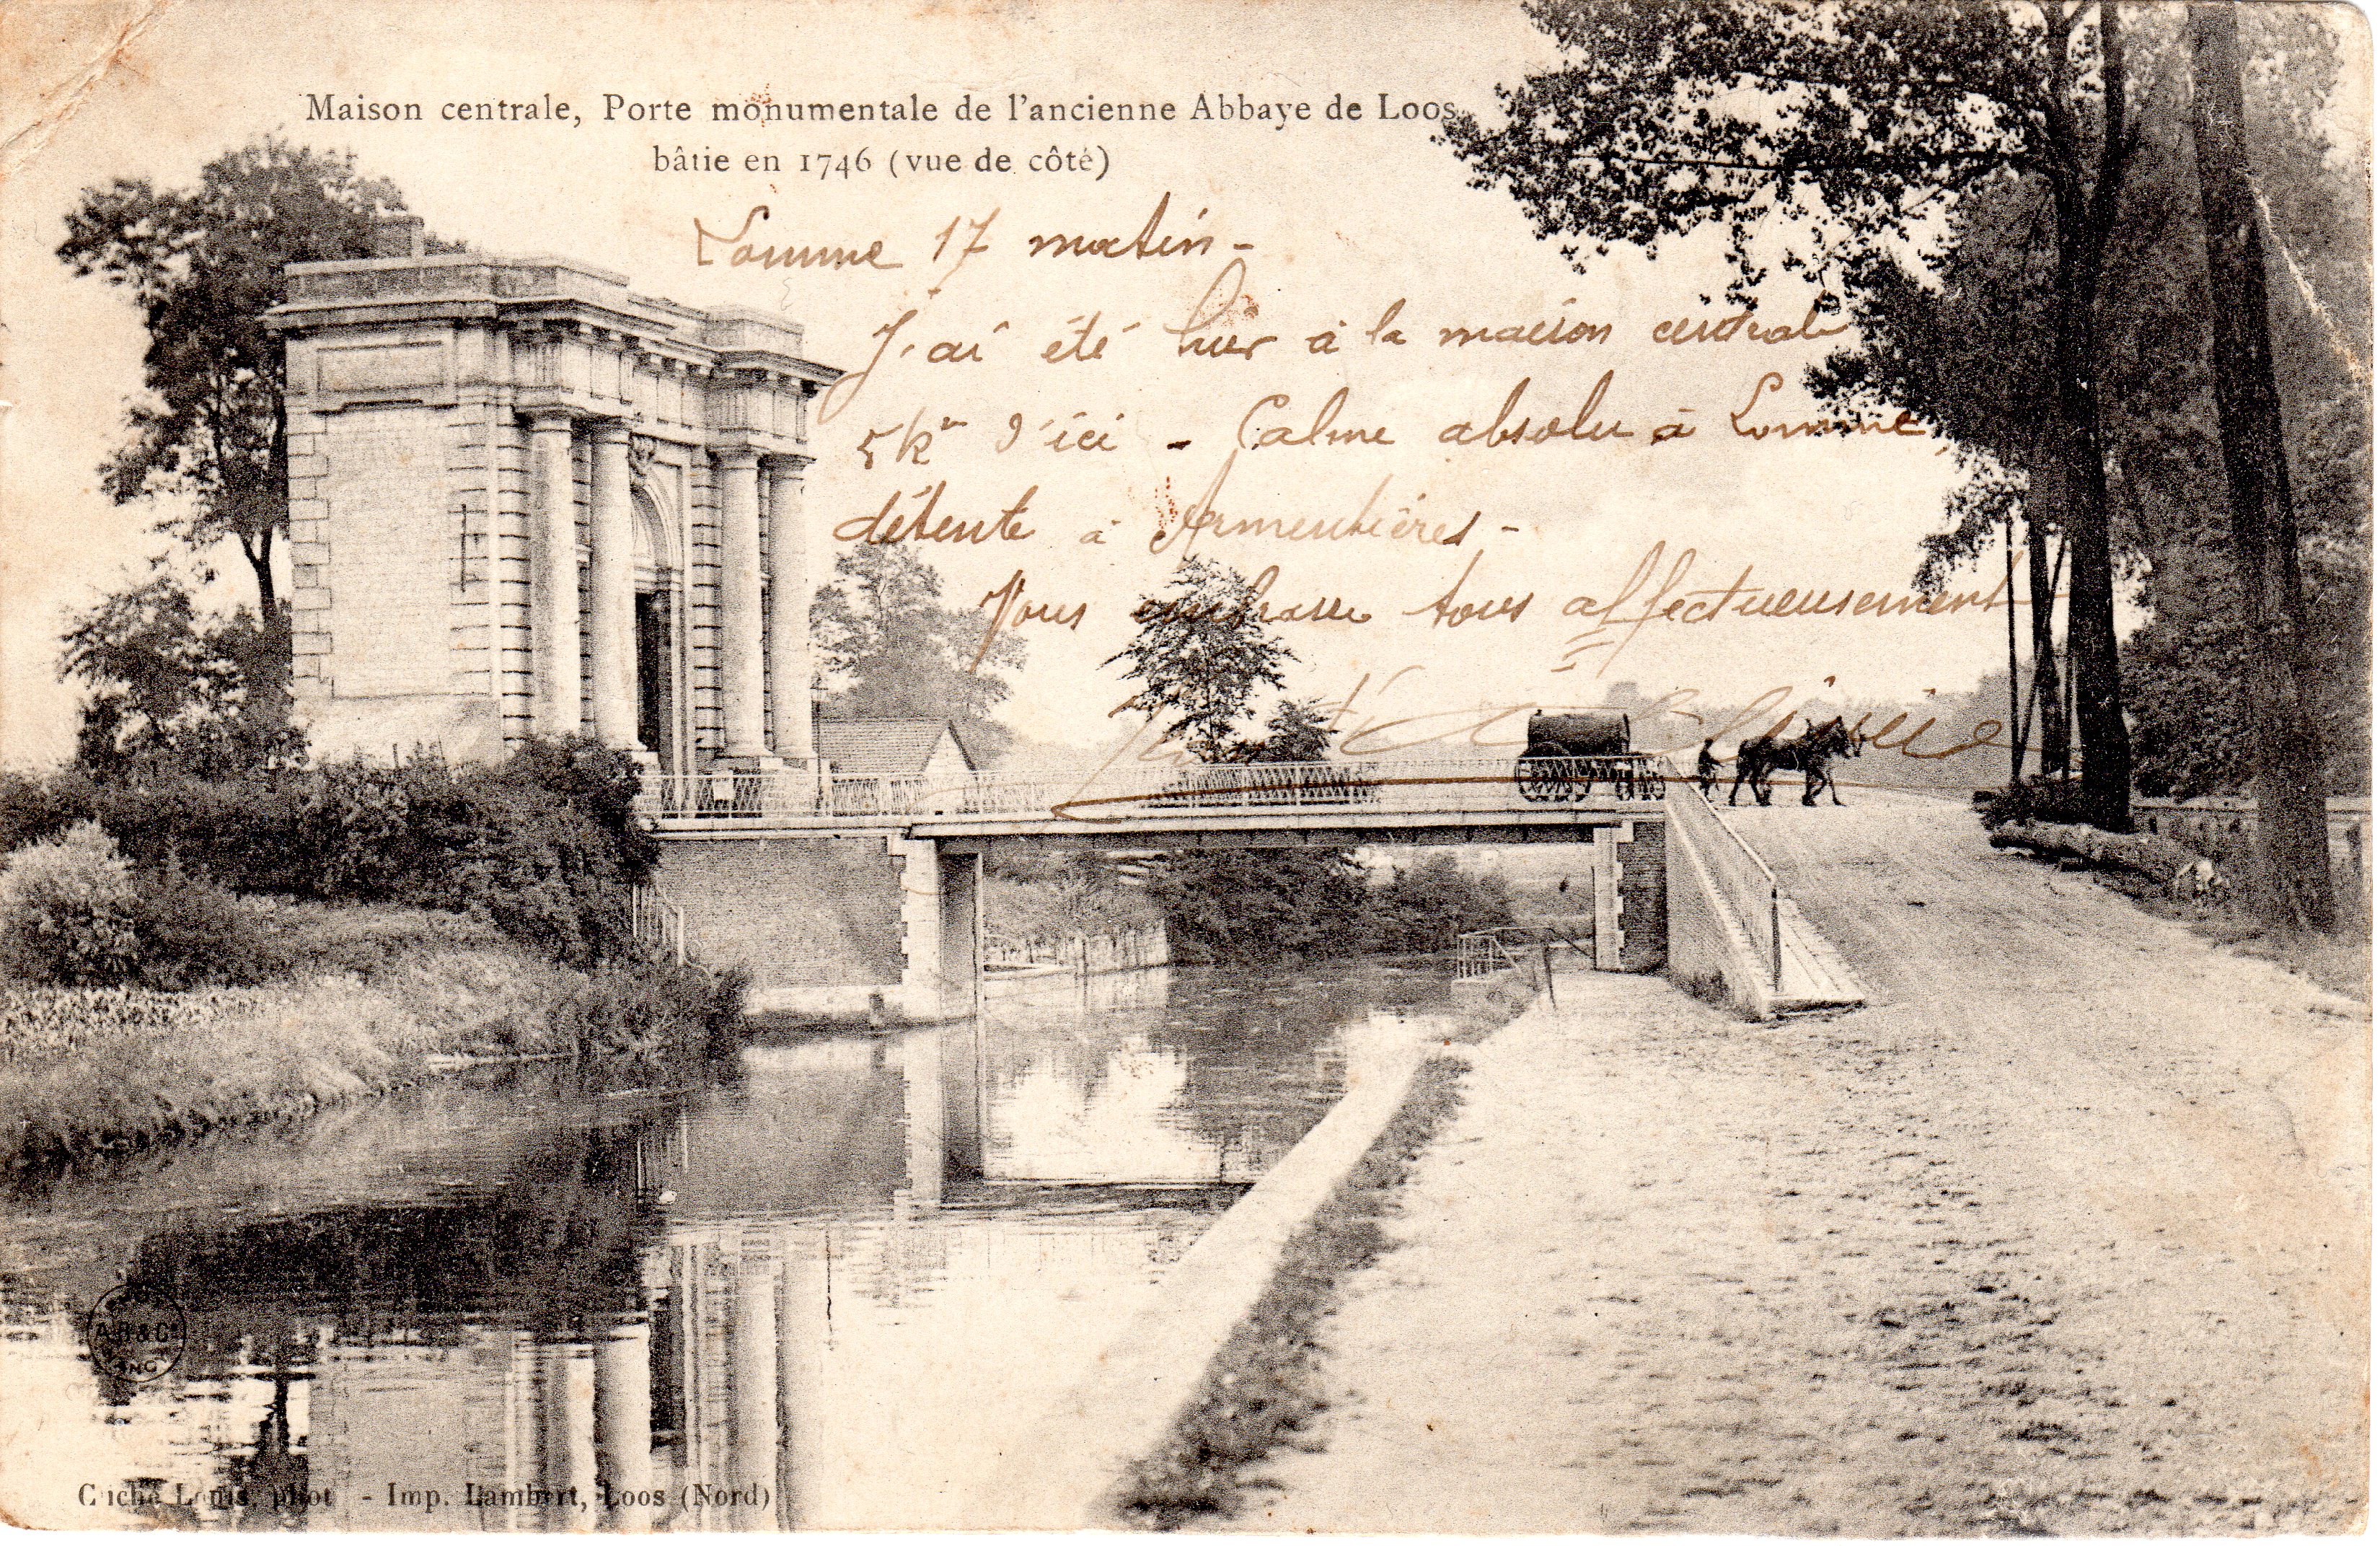 Maison centrale, Porte monumentale de l'ancienne Abbaye de Loos
bâtie en 1746 (vue de côté)
Lomme 17 matin -
J'ai été hier à la maison centrale
5 km d'ici - Calme absolu à Lomme,
détente à Armentières -
Vous embrasse tous affectueusement
A.B & Cie
Cliché Louis, phot - Imp. Lambert, Loos (Nord)